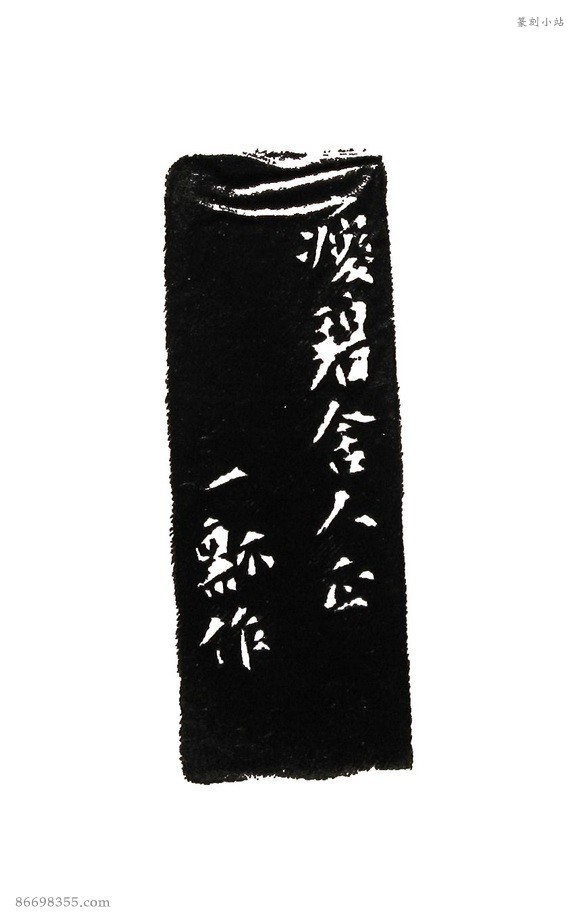 篆刻小站
瘦碧舍人正
一瓢作
86698355.com